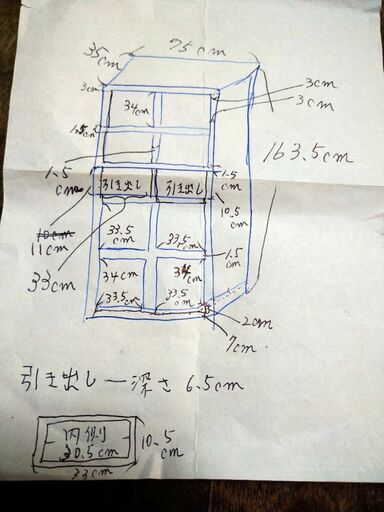 35cm
75cm
3cm
3cm
3cm
34cm
1.5cm
163.5cm
1.5cm
引き出し
引き出し
1.5cm
10cm
11cm
10.5cm
33.5cm
33.5cm
1.5cm
33cm
34cm
34cm
33.5cm
33.5cm
2cm
7cm
引き出し一深さ6.5cm
内側
30.5cm
10.5cm
33cm